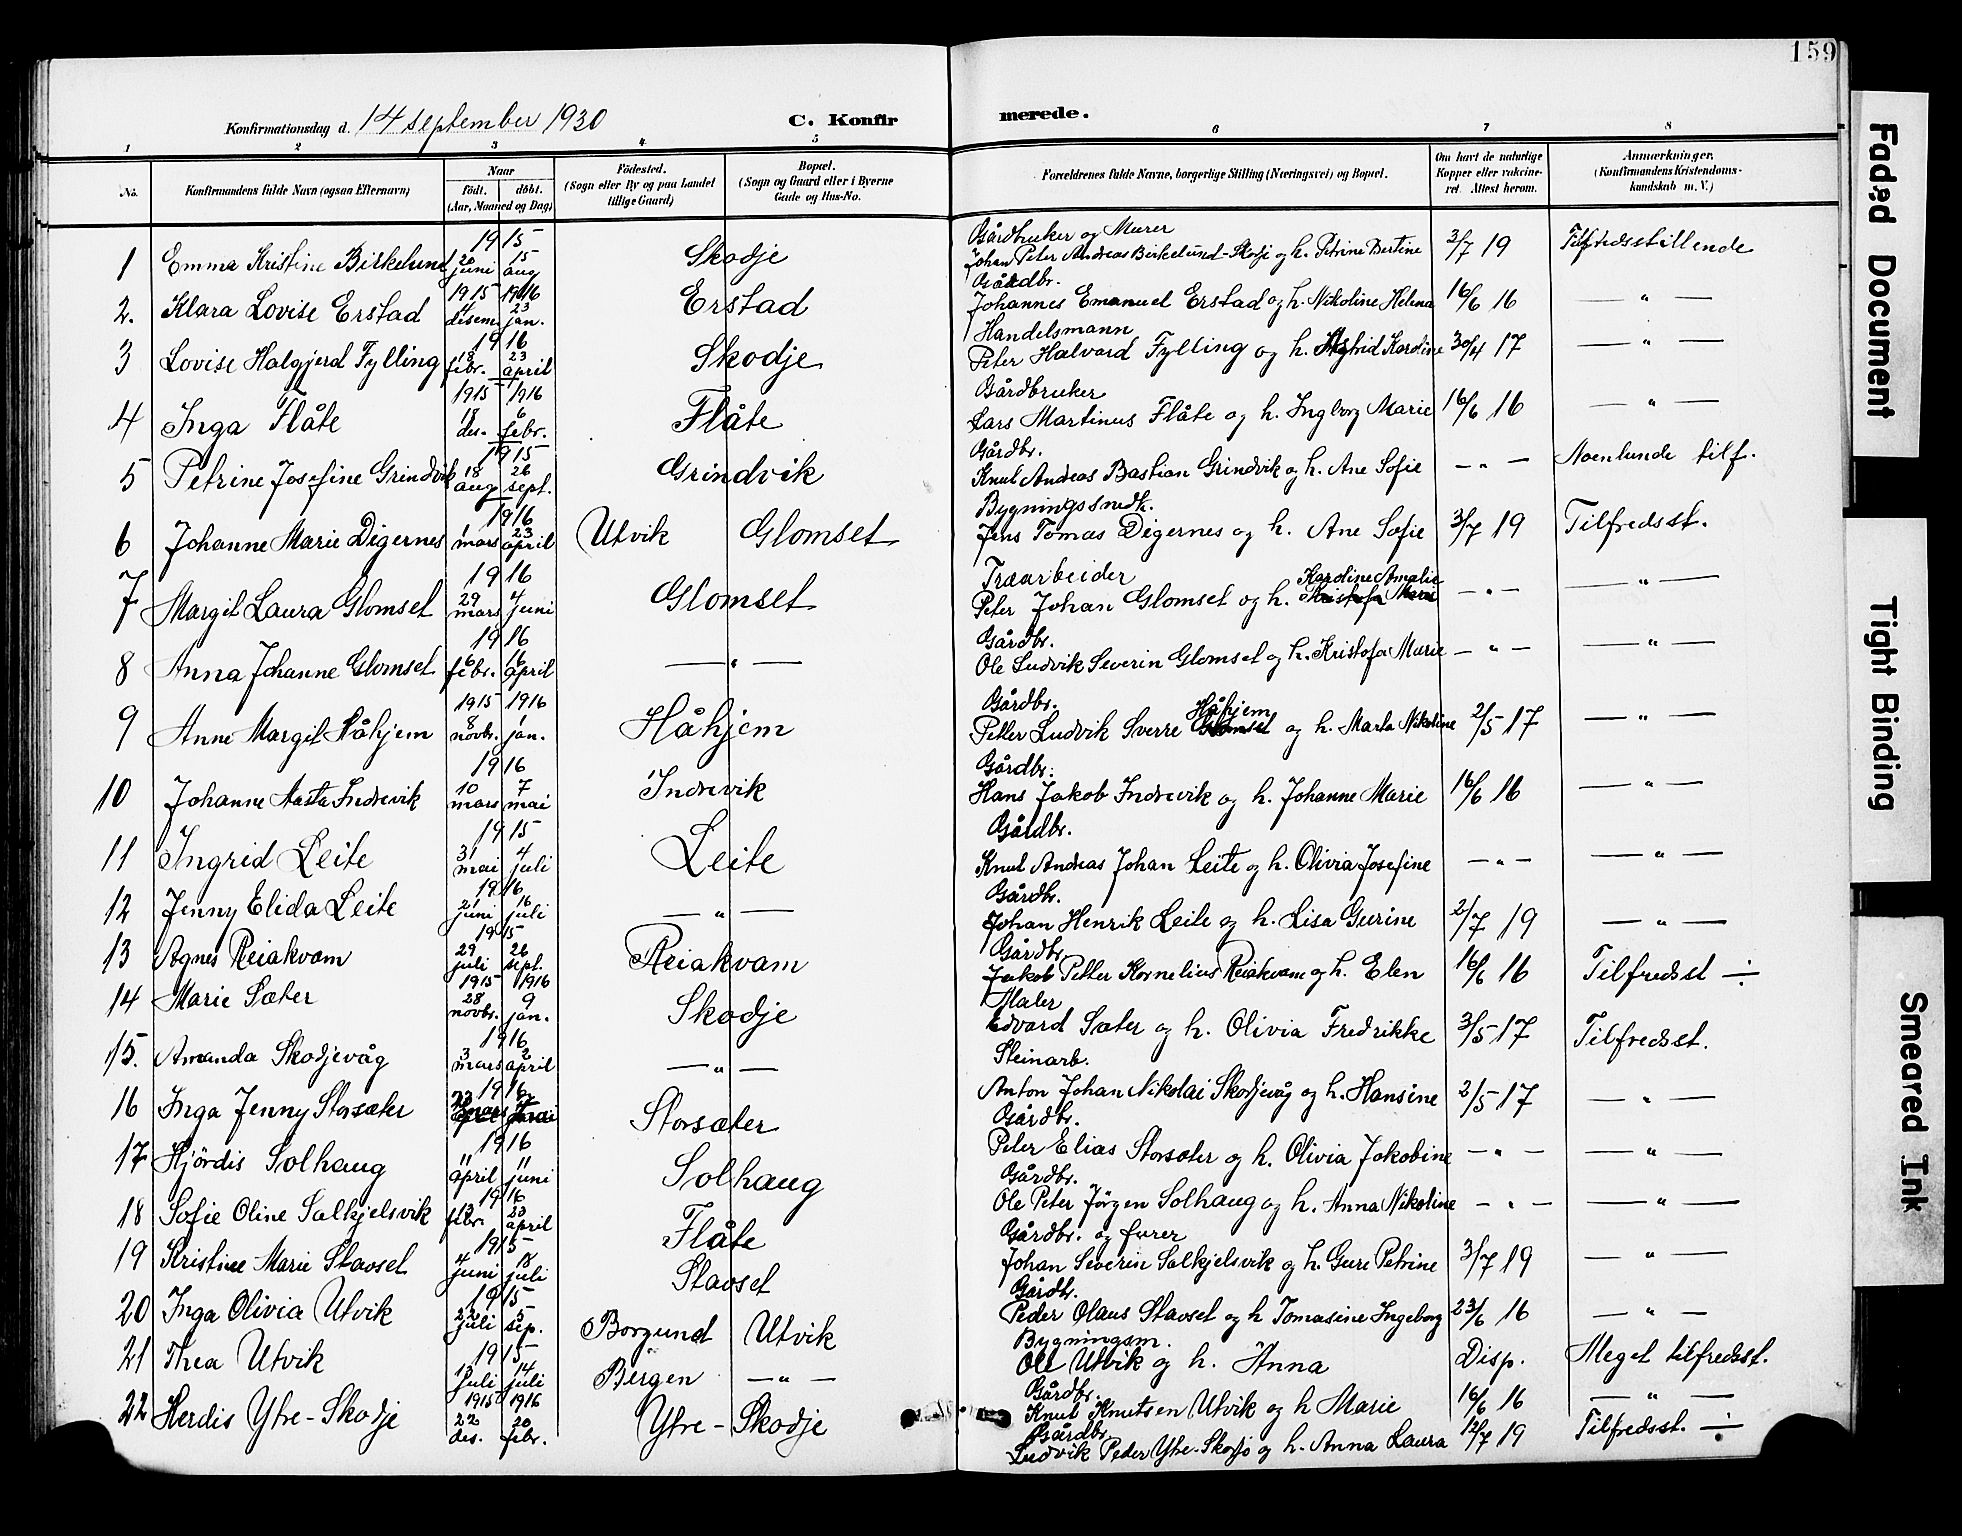 159
Konfirmationsdag d. 14 september 1930 C. Konfirmerede.
1 2 3 4 5 6 7 8
No. Konfirmandens fulde Navn (ogsaa Efternavn) Naar født. døbt. (Aar, Maaned og Dag) Fødested. (Sogn eller By og paa Landet tillige Gaard) Bopæl. (Sogn og Gaard eller i Byerne Gade og Hus-No. Forældrenes fulde Navne, borgerlige Stilling (Næringsvei) og Bopæl. Om havt de naturlige Kopper eller vaccineret. Attest herom. Anmærkninger. (Konfirmandens Kristendomskundskab m. V.)
1915 Gårdbruker og Murer
1 Emma Kristine Birkelund 20 juni 15 aug Skodje Johan Peter Andreas Birkelund-Skodje og h. Petrine Bertine 3/7 19 Tilfredsstillende
1915 1916 Gårdbr.
2. Klara Lovise Erstad desem. 23 jan. Erstad Johannes Emanuel Erstad og h. Nikoline Helena 16/6 16 — " —
1916 Handelsmann
3 Lovise Halgjerd Fylling 18 febr. 23 april Skodje Peter Halvard Fylling og h. Astrid Karoline 30/4 17 — " —
1915 1916 Gårdbruker
4 Inga Flåte 18 des. 6 febr. Flåte Lars Martinus Flåte og h. Ingborg Marie 16/6 16 — " —
1915 Gårdbr.
5 Petrine Josefine Grindvik 18 aug 26 sept. Grindvik Knut Andreas Bastian Grindvik og h. Ane Sofie — " — Noenlunde tilf.
1916 Bygningssnedk.
6 Johanne Marie Digernes 1 mars 23 april Utvik Glomset Jens Tomas Digernes og h. Ane Sofie 3/7 19 Tilfredsst.
1916 Træarbeider Karoline Amalie
7 Margit Laura Glomset 29 mars 4 juni Glomset Peter Johan Glomset og h. Kristofa Marie — " — — " —
1916 Gårdbr.
8 Anna Johanne Glomset 6 febr. 16 april — " — Ole Ludvik Severin Glomset og h. Kristofa Marie — " — — " —
1915 1916 Gårdbr. Håhjem
9 Anne Margit Håhjem 8 novbr. 1 jan. Håhjem Petter Ludvik Sverre Glomset og h. Marta Nikoline 2/5 17 — " —
1916 Gårdbr.
10 Johanne Aasta Indrevik 10 mars 7 mai Indrevik Hans Jakob Indrevik og h. Johanne Marie 16/6 16 — " —
1915 Gårdbr.
11 Ingrid Leite 31 mai 4 juli Leite Knut Andreas Johan Leite og h. Olivia Josefine — " — — " —
1916 Gårdbr.
12 Jenny Elida Leite 21 juni 16 juli — " — Johan Henrik Leite og h. Lisa Gurine 2/7 19 — " —
1915 Gårdbr.
13 Agnes Reiakvam 29 juli 26 sept. Reiakvam Jakob Petter Kornelius Reiakvam og h. Elen 16/6 16 Tilfredsst ÷
1915 1916 Maler
14 Marie Sæter 28 novbr. 9 jan. Skodje Edvard Sæter og h. Olivia Fredrikke 3/5 17 Tilfredsst.
1916 Steinarb.
15. Amanda Skodjevåg 3 mars 2 april — " — Anton Johan Nikolai Skodjevåg og h. Hansine 2/5 17 — " —
1916 Gårdbr.
16 Inga Jenny Storsæter 23 mars Storsæter Peter Elias Storsæter og h. Olivia Jakobine — " — — " —
1916 Gårdbr.
17 Hjördis Solhaug 11 april 11 juni Solhaug Ole Peter Jörgen Solhaug og h. Anna Nikoline — " — — " —
1916 Gårdbr. og furer
18 Sofie Oline Salkjelsvik 13 febr. 23 april Flåte Johan Severin Salkjelsvik og h. Gure Petrine 3/7 19 — " —
1915 Gårdbr.
19 Kristine Marie Stavset 4 juni 18 juli Stavset Peder Olaus Stavset og h Tomasine Ingeborg 23/6 16 — " —
1915 Bygningsm.
20 Inga Olivia Utvik 22 juli 5 sep. Borgund Utvik Ole Utvik og h. Anna Disp. Meget tilfredsst.
1915 Gårdbr.
21 Thea Utvik juli 14 juli Bergen — " — Knut Knutsen Utvik og h Marie 16/6 16 — " —
1915 1916 Gårdbr.
22 Herdis Ytre-Skodje 22 des. 20 febr. Ytre-Skodje Ludvik Peder Ytre-Skodje og h. Anna Laura 12/7 19 Tilfredsst. ÷
Faded Document
Tight Binding
Smeared Ink